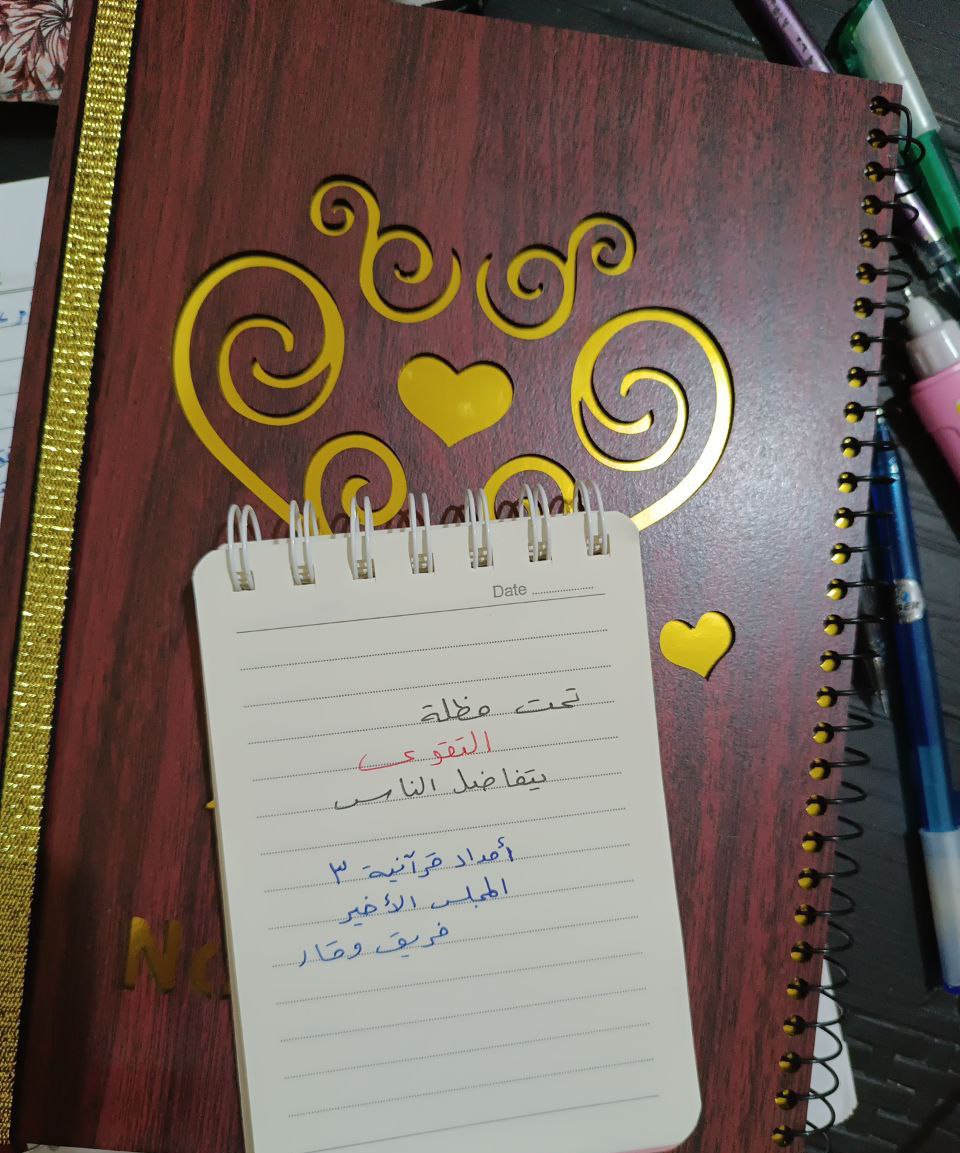 Date
تحت مظلة
التقوى
يتفاضل الناس
أمداد قرآنية ٣
المجلس الأخير
فريق وقار
No